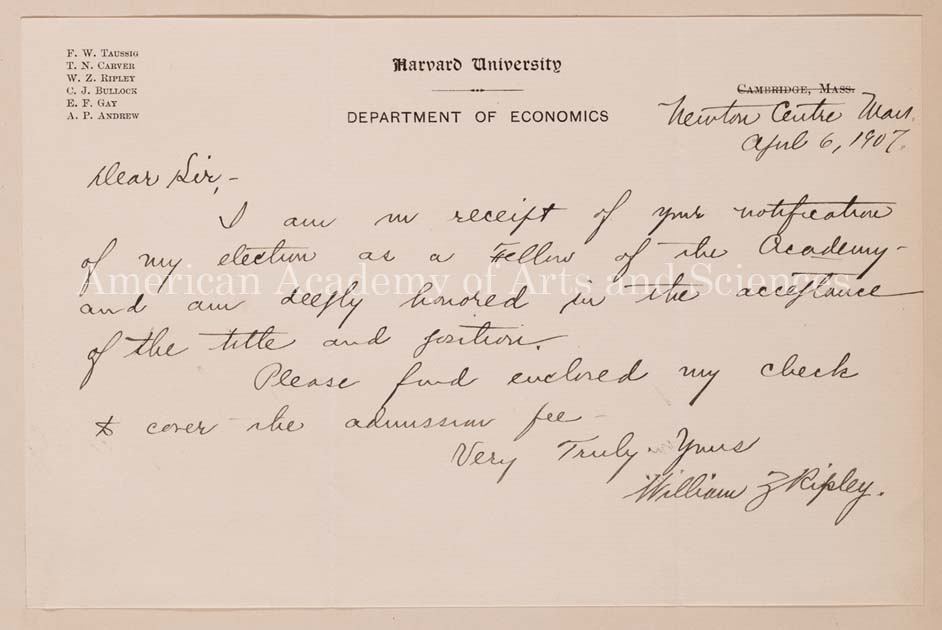 F. W. TAUSSIG
T. N. CARVER
W. Z. RIPLEY
C. J. BULLOCK
E. F. GAY
A. P. ANDREW
Harvard University
DEPARTMENT OF ECONOMICS
CAMBRIDGE, MASS.
Newton Centre Mass.
April 6, 1907.
Dear Sir,-
I am in receipt of your notification
of my election as a Fellow of the Academy-
American Academy of Arts and Sciences
and am deeply honored in the acceptance
of the title and position.
Please find enclosed my check
to cover the admission fee-
Very Truly Yours
William Z Ripley.